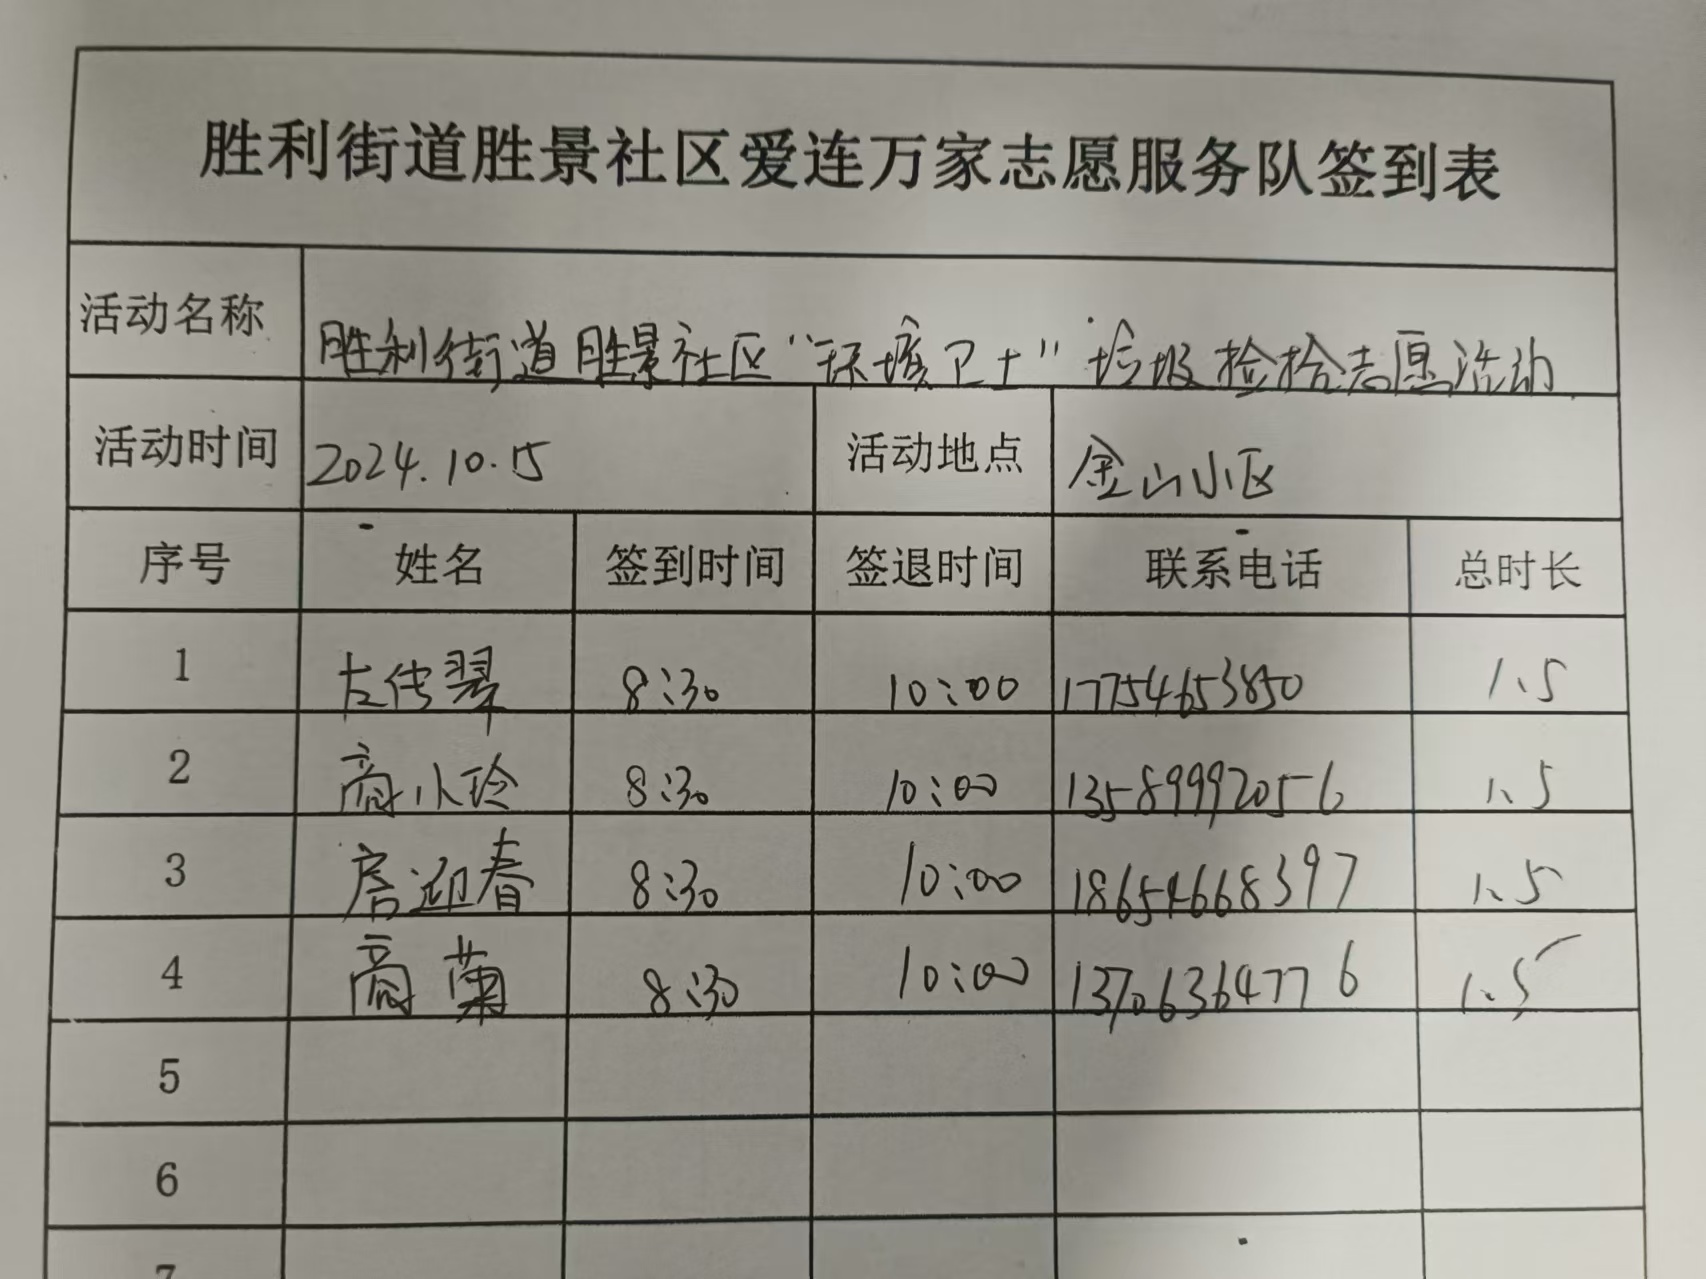 胜利街道胜景社区爱连万家志愿服务队签到表
活动名称 胜利街道胜景社区“环境卫士”垃圾捡拾志愿活动
活动时间 2024.10.15 活动地点 金山小区
序号 姓名 签到时间 签退时间 联系电话 总时长
1 左传翠 8:30 10:00 17754653850 1.5
2 商小玲 8:30 10:00 13589992056 1.5
3 启迎春 8:30 10:00 18654668397 1.5
4 商菊 8:30 10:00 13706364776 1.5
5
6
7